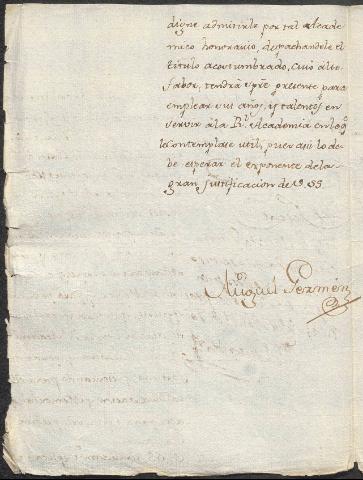 digne admitirle por tal Acade
mico honorario, despachandole el
titulo acostumbrado, cuio alto
fabor, tendrá spre presente para
emplear sus años, y talentos en
servir á la Rl. Academia en lo q.
le Contemplase util, pues asi lo de
be esperar el exponente de la
gran justificacion de V.SS.